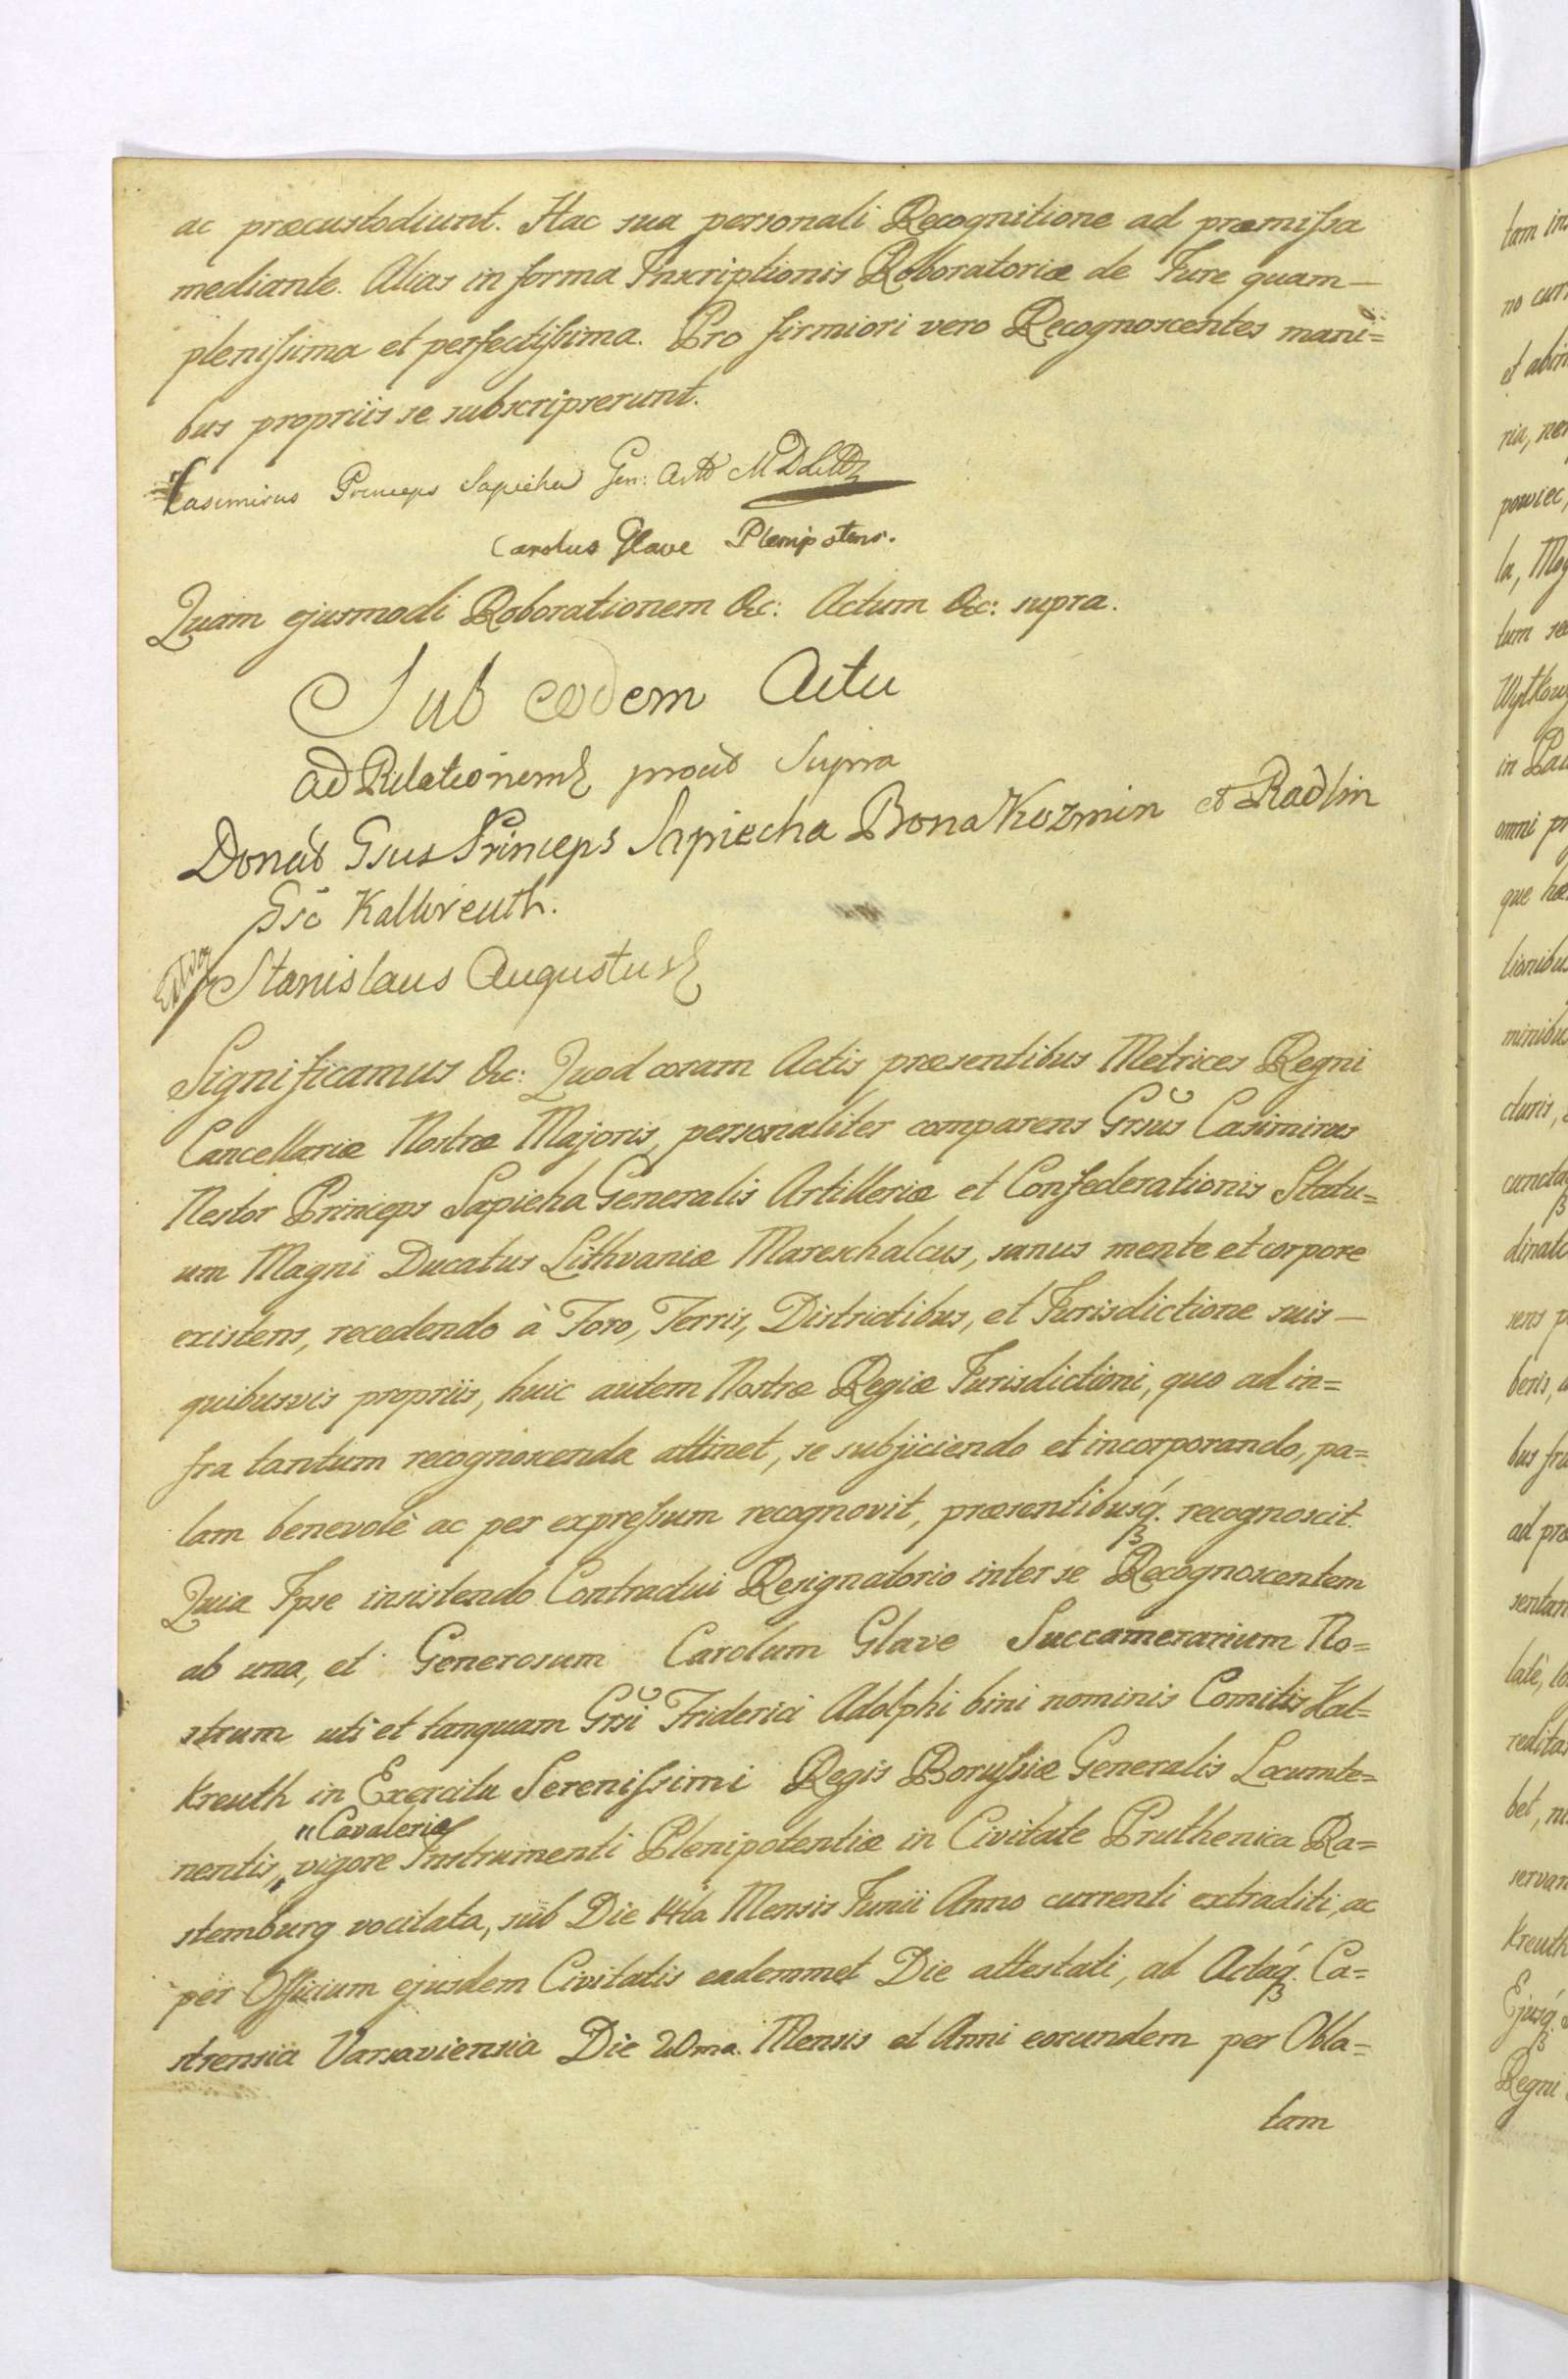 ac præcustodiunt. Hac sua personali Recognitione ad præmiſsa
mediante. Alias in forma Inscriptionis Roboratoriæ de Jure quam—
pleniſsima et perfectiſsima. Pro firmiori vero Recognoscentes mani=
bus propriis se subscripserunt.
Casimirus Princeps Sapieha Gen: Art M D Litt
Carolus Glave Plenipotens.
Quam ejusmodi Roborationem &c: Actum &c: supra.
Sub eodem Actu
Ad Relationem prout Supra
Donat Gsus Princeps Sapiecha Bona Kozmin et Radlin
Gsō Kalkreuth.
Stanislaus Augustus
Significamus &c: Quod coram Actis præsentibus Metrices Regni
Cancellariæ Nostræ Majoris, personaliter comparens Grsus Casimirus
Nestor Princeps Sapieha Generalis Artilleriæ et Confederationis Statu=
um Magni Ducatus Lithvaniæ Mareschalcus, sanus mente et corpore
existens, recedendo à Foro, Terris, Districtibus, et Jurisdictione suis—
quibusvis propriis, huic autem Nostræ Regiæ Jurisdictioni, quo ad in=
fra tantum recognoscenda attinet, se subjiciendo et incorporando, pa=
lam benevolè ac per expreſsum recognovit, præsentibusq́. recognoscit.
Quia Ipse insistendo Contractui Resignatorio inter se Recognoscentem
ab una, et Generosum Carolum Glave Succamerarium No=
strum uti et tanquam Grsi Friderici Adolphi bini nominis Comitis Kal=
kreuth in Exercitu Sereniſsimi Regis Boruſsiæ Generalis Locumte=
"Cavaleriæ
nentis,„ vigore Instrumenti Plenipotentiæ in Civitate Pruthenica Ra=
stemburg vocitata, sub Die 14ta Mensis Junii Anno currenti extraditi, ac
per Officium ejusdem Civitatis eademmet Die attestati, ad Actaq́. Ca=
strensia Varsaviensia Die 20ma. Mensis et Anni eorundem per Obla=
tam